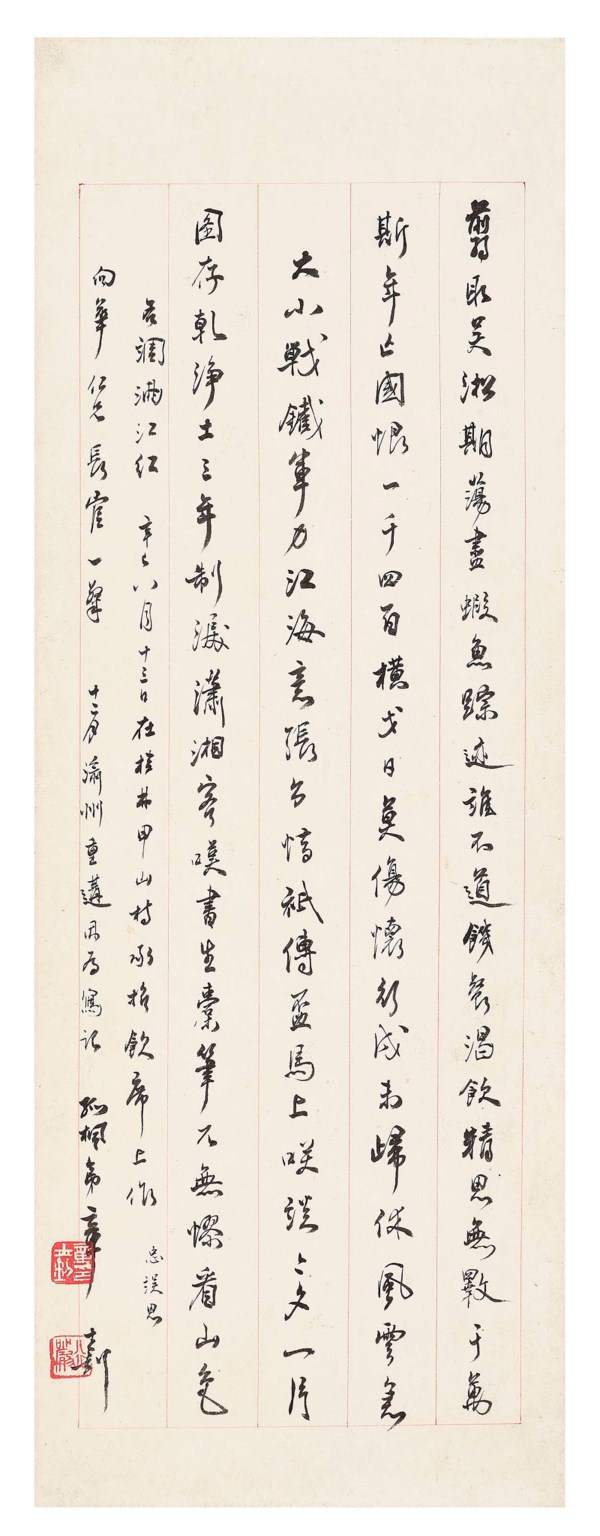 翦取吳淞期蕩盡蝦魚踪迹誰不道饑餐渴飲精思無斁千萬
斯年亡國恨一千四百橫戈日莫傷懷行戍未歸休風雲急
大小戰鐵軍力江海意張公憤祇傳盃馬上咲談今夕一片
圖存乾淨土三年制瀟湘客嘆書生橐筆不無憀看山色
右調滿江紅 辛巳八月十三日在桂林甲山村承招飲席上作 忠誤思
向華仁兄長官一粲 十二月瀛州重遘因為寫記 孤桐弟章士釗